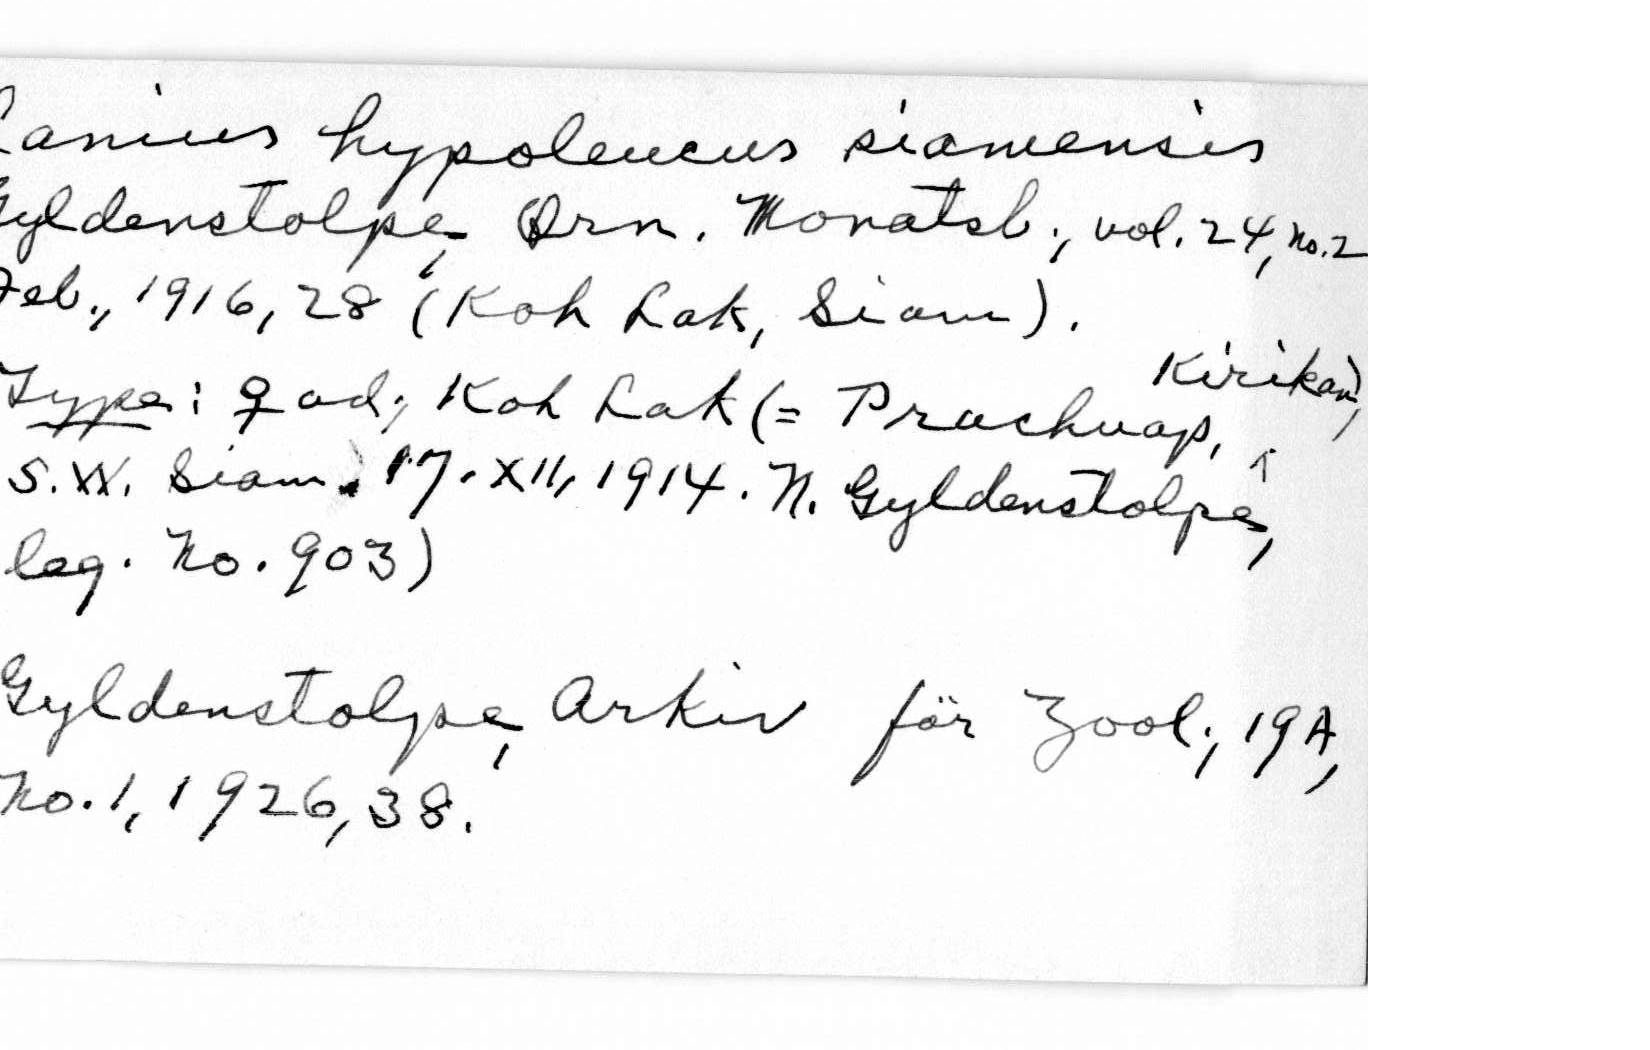 Lanius hypoleucus siamensis
Gyldenstolpe, Orn. Monatsb., vol. 24, no. 2
Feb., 1916, 28 (Koh Lak, Siam).
Type: ♀ ad., Koh Lak (= Prachuap, Kirikan),
S.W. Siam. 17.XII,1914. N. Gyldenstolpe,
leg. No. 903)
Gyldenstolpe, Arkiv för Zool., 19A,
No. 1, 1926, 38.